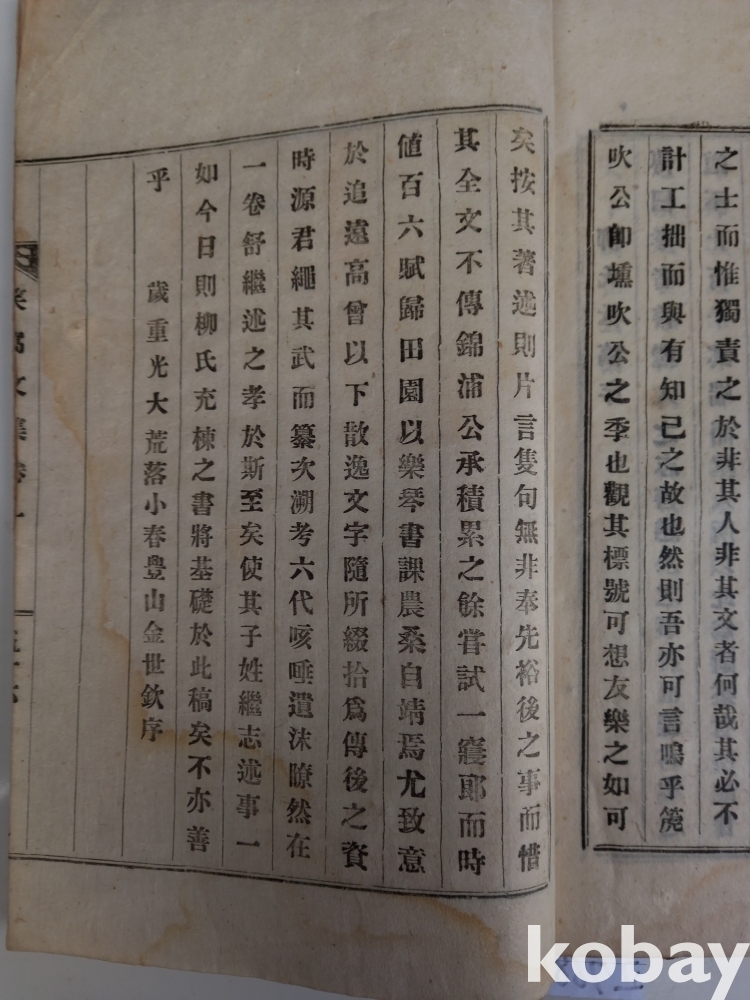 之士而惟獨責之於非其人非其文者何哉其必不
計工拙而與有知己之故也然則吾亦可言嗚乎篪
吹公卽壎吹公之季也觀其標號可想友樂之如可
矣按其著述則片言隻句無非奉先裕後之事而惜
其全文不傳錦浦公承積累之餘嘗試一寢郞而時
値百六賦歸田園以樂琴書課農桑自靖焉尤致意
於追遠高曾以下散逸文字隨所綴拾爲傳後之資
時源君繩其武而纂次溯考六代咳唾遺沫瞭然在
一卷舒繼述之孝於斯至矣使其子姓繼志述事一
如今日則柳氏充棟之書將基礎於此稿矣不亦善
乎
歲重光大荒落小春豊山金世欽序
文集卷一
kobay